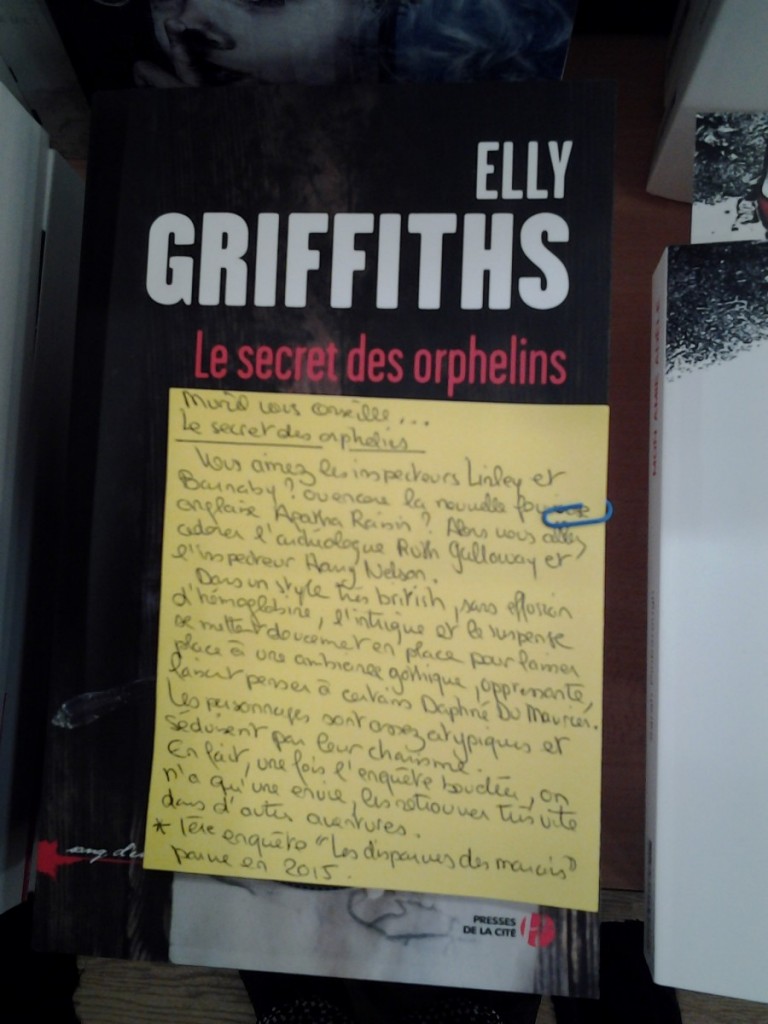 ELLY
GRIFFITHS
Le secret des orphelins
Muriel vous conseille...
Le secret des orphelins
Vous aimez les inspecteurs Linley et
Barnaby ? ou encore la nouvelle
anglaise Agatha Raisin ? Alors vous allez
adorer l'archéologue Ruth Galloway et
l'inspecteur Harry Nelson.
Dans un style très british, sans effusion
d'hémoglobine, l'intrigue et le suspense
se mettent doucement en place pour laisser
place à une ambiance gothique, oppressante,
laissant penser à certains Daphné Du Maurier.
Les personnages sont assez atypiques et
séduisent par leur charisme.
En fait, une fois l'enquête bouclée, on
n'a qu'une envie, les retrouver très vite
dans d'autres aventures.
* 1ère enquête "Les disparues des marais"
parue en 2015.
PRESSES
DE LA CITÉ